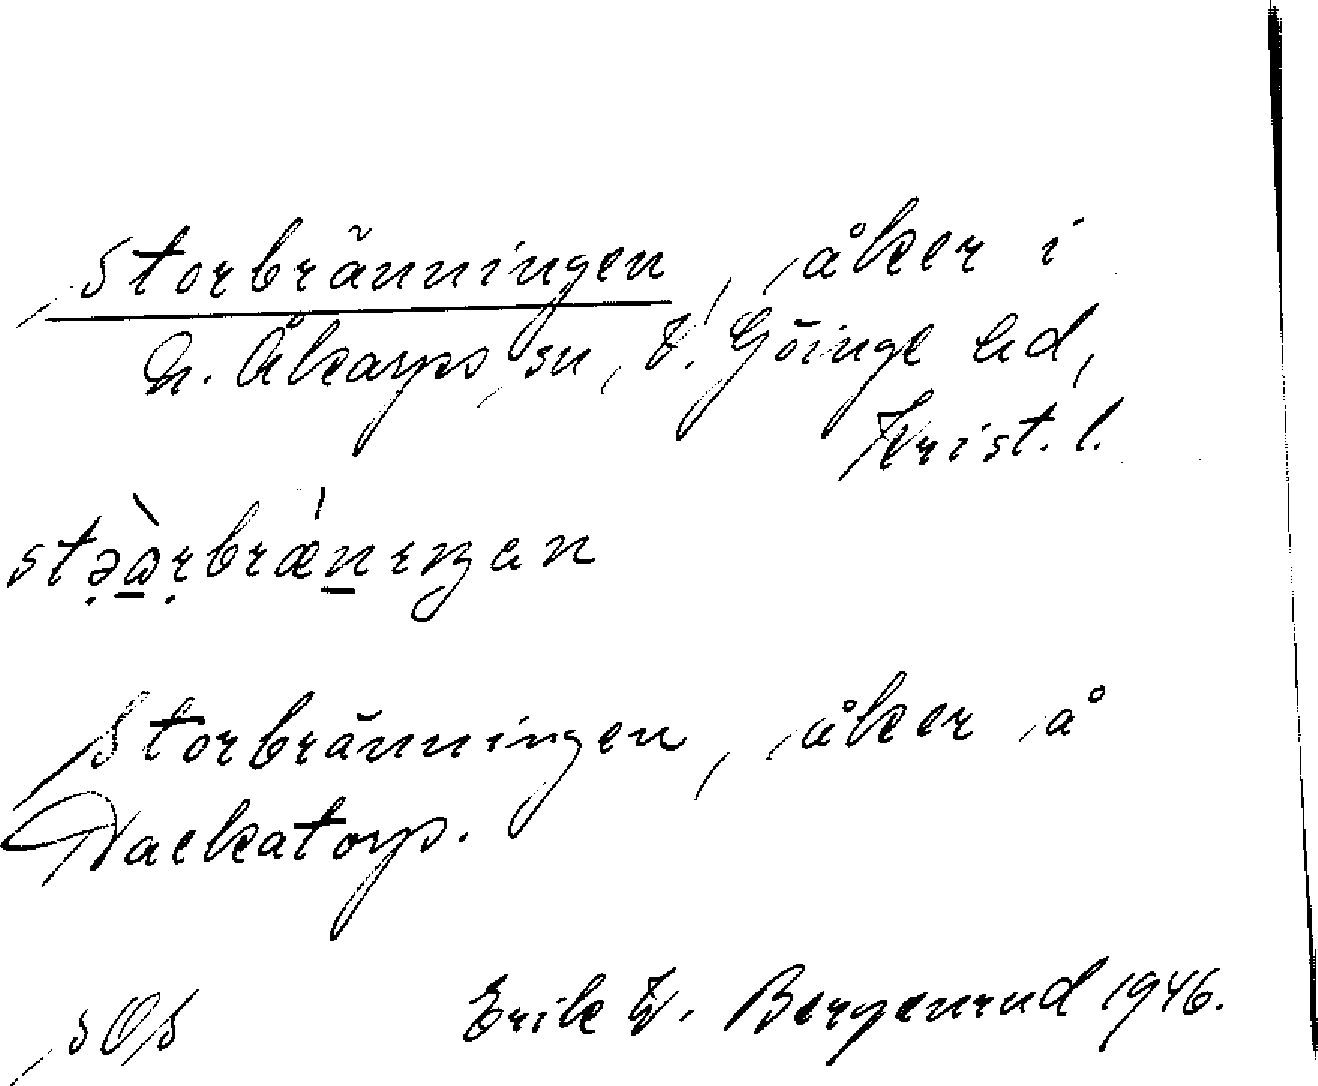 Storbränningen, åker i
N. Åkarps sn, V. Göinge hd,
Krist. l.
Storbränningen, åker å
Nackatorp.
SOS Erik W. Bergenrud 1946.